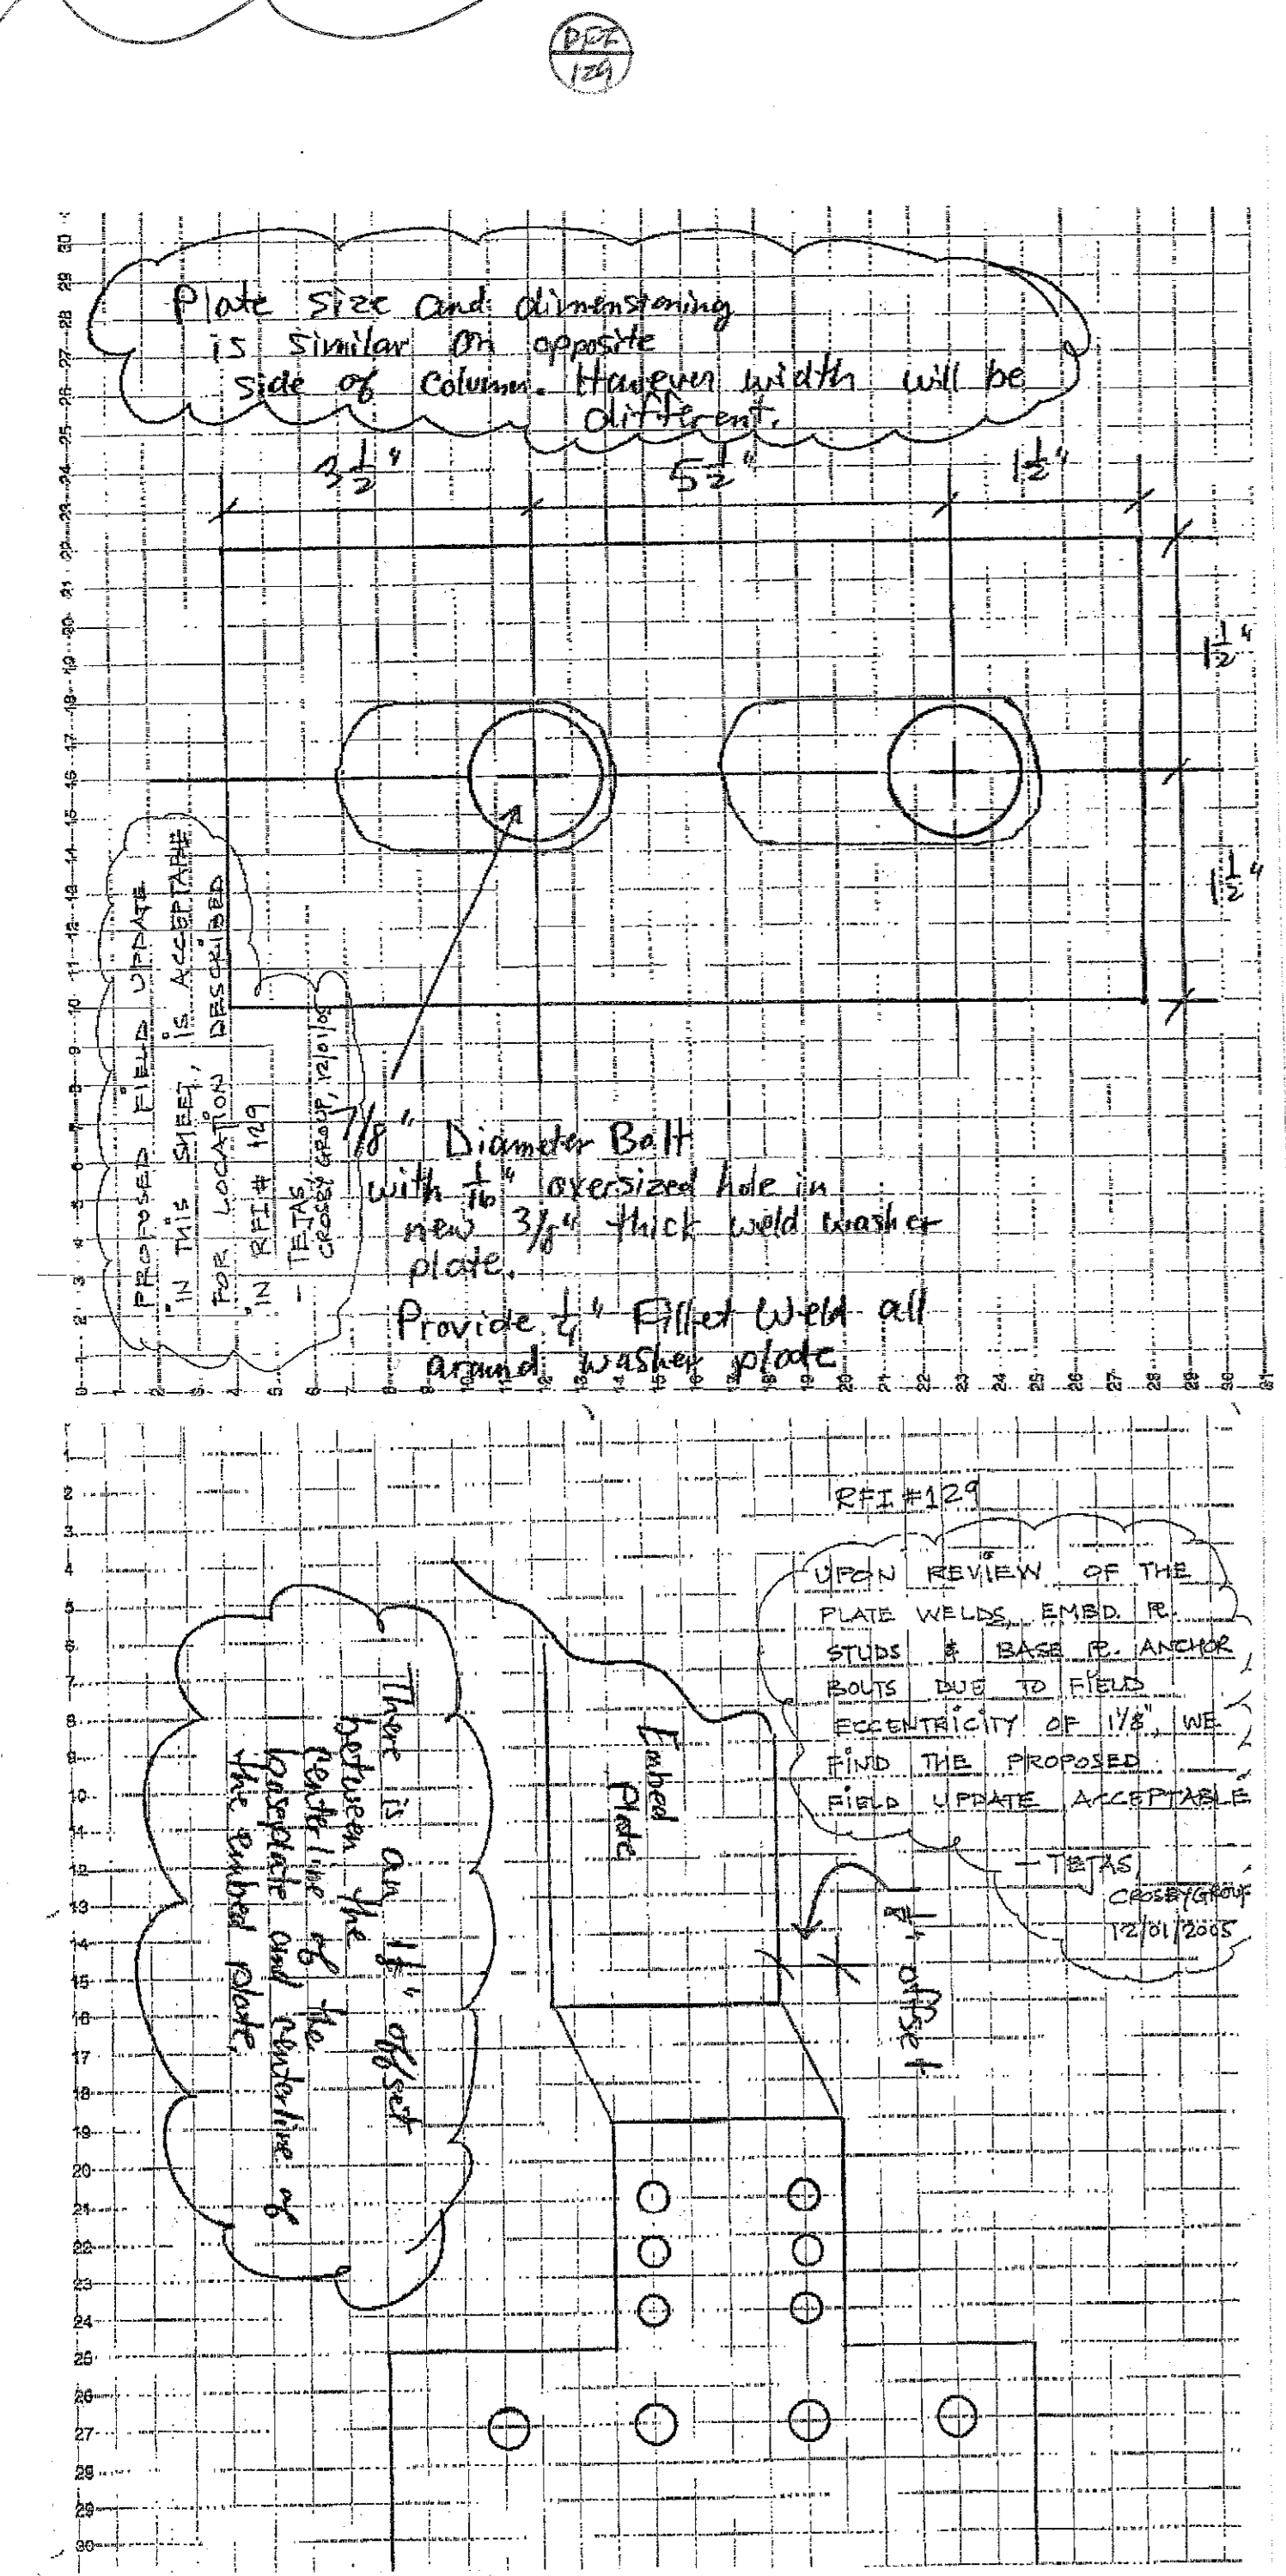 RFI
129
Plate size and dimensioning
is similar on opposite
side of column. However width will be
different.
3 1/2" 5 1/2" 1 1/2"
1 1/2"
1 1/2"
PROPOSED FIELD UPDATE
IN THIS SHEET, IS ACCEPTABLE
FOR LOCATION DESCRIBED
IN RFI# 129
- TEJAS,
CROSBY GROUP, 12/01/05
7/8" Diameter Bolt
with 1/16" oversized hole in
new 3/8" thick weld washer
plate.
Provide 1/4" Fillet weld all
around washer plate
RFI #129
UPON REVIEW OF THE
PLATE WELDS, EMBD. PL.
STUDS & BASE PL. ANCHOR
BOLTS DUE TO FIELD
ECCENTRICITY OF 1 1/8", WE
FIND THE PROPOSED
FIELD UPDATE ACCEPTABLE
- TEJAS,
CROSBY GROUP
12/01/2005
There is an 1 1/8" offset
between the
centerline of the
baseplate and centerline of
the embed plate.
Embed
Plate
1 1/8" offset